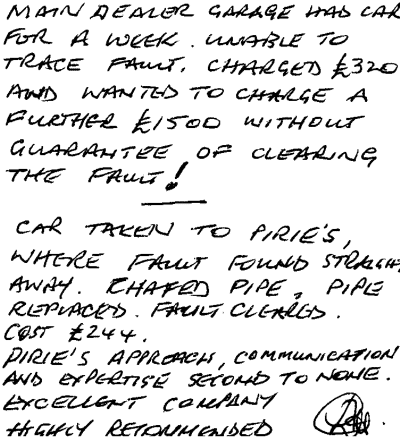 MAIN DEALER GARAGE HAD CAR
FOR A WEEK. UNABLE TO
TRACE FAULT. CHARGED £320
AND WANTED TO CHARGE A
FURTHER £1500 WITHOUT
GUARANTEE OF CLEARING
THE FAULT!
CAR TAKEN TO PIRIE'S,
WHERE FAULT FOUND STRAIGHT
AWAY. CHAFED PIPE, PIPE
REPLACED. FAULT CLEARED.
COST £244.
PIRIE'S APPROACH, COMMUNICATION
AND EXPERTISE SECOND TO NONE.
EXCELLENT COMPANY
HIGHLY RECOMMENDED